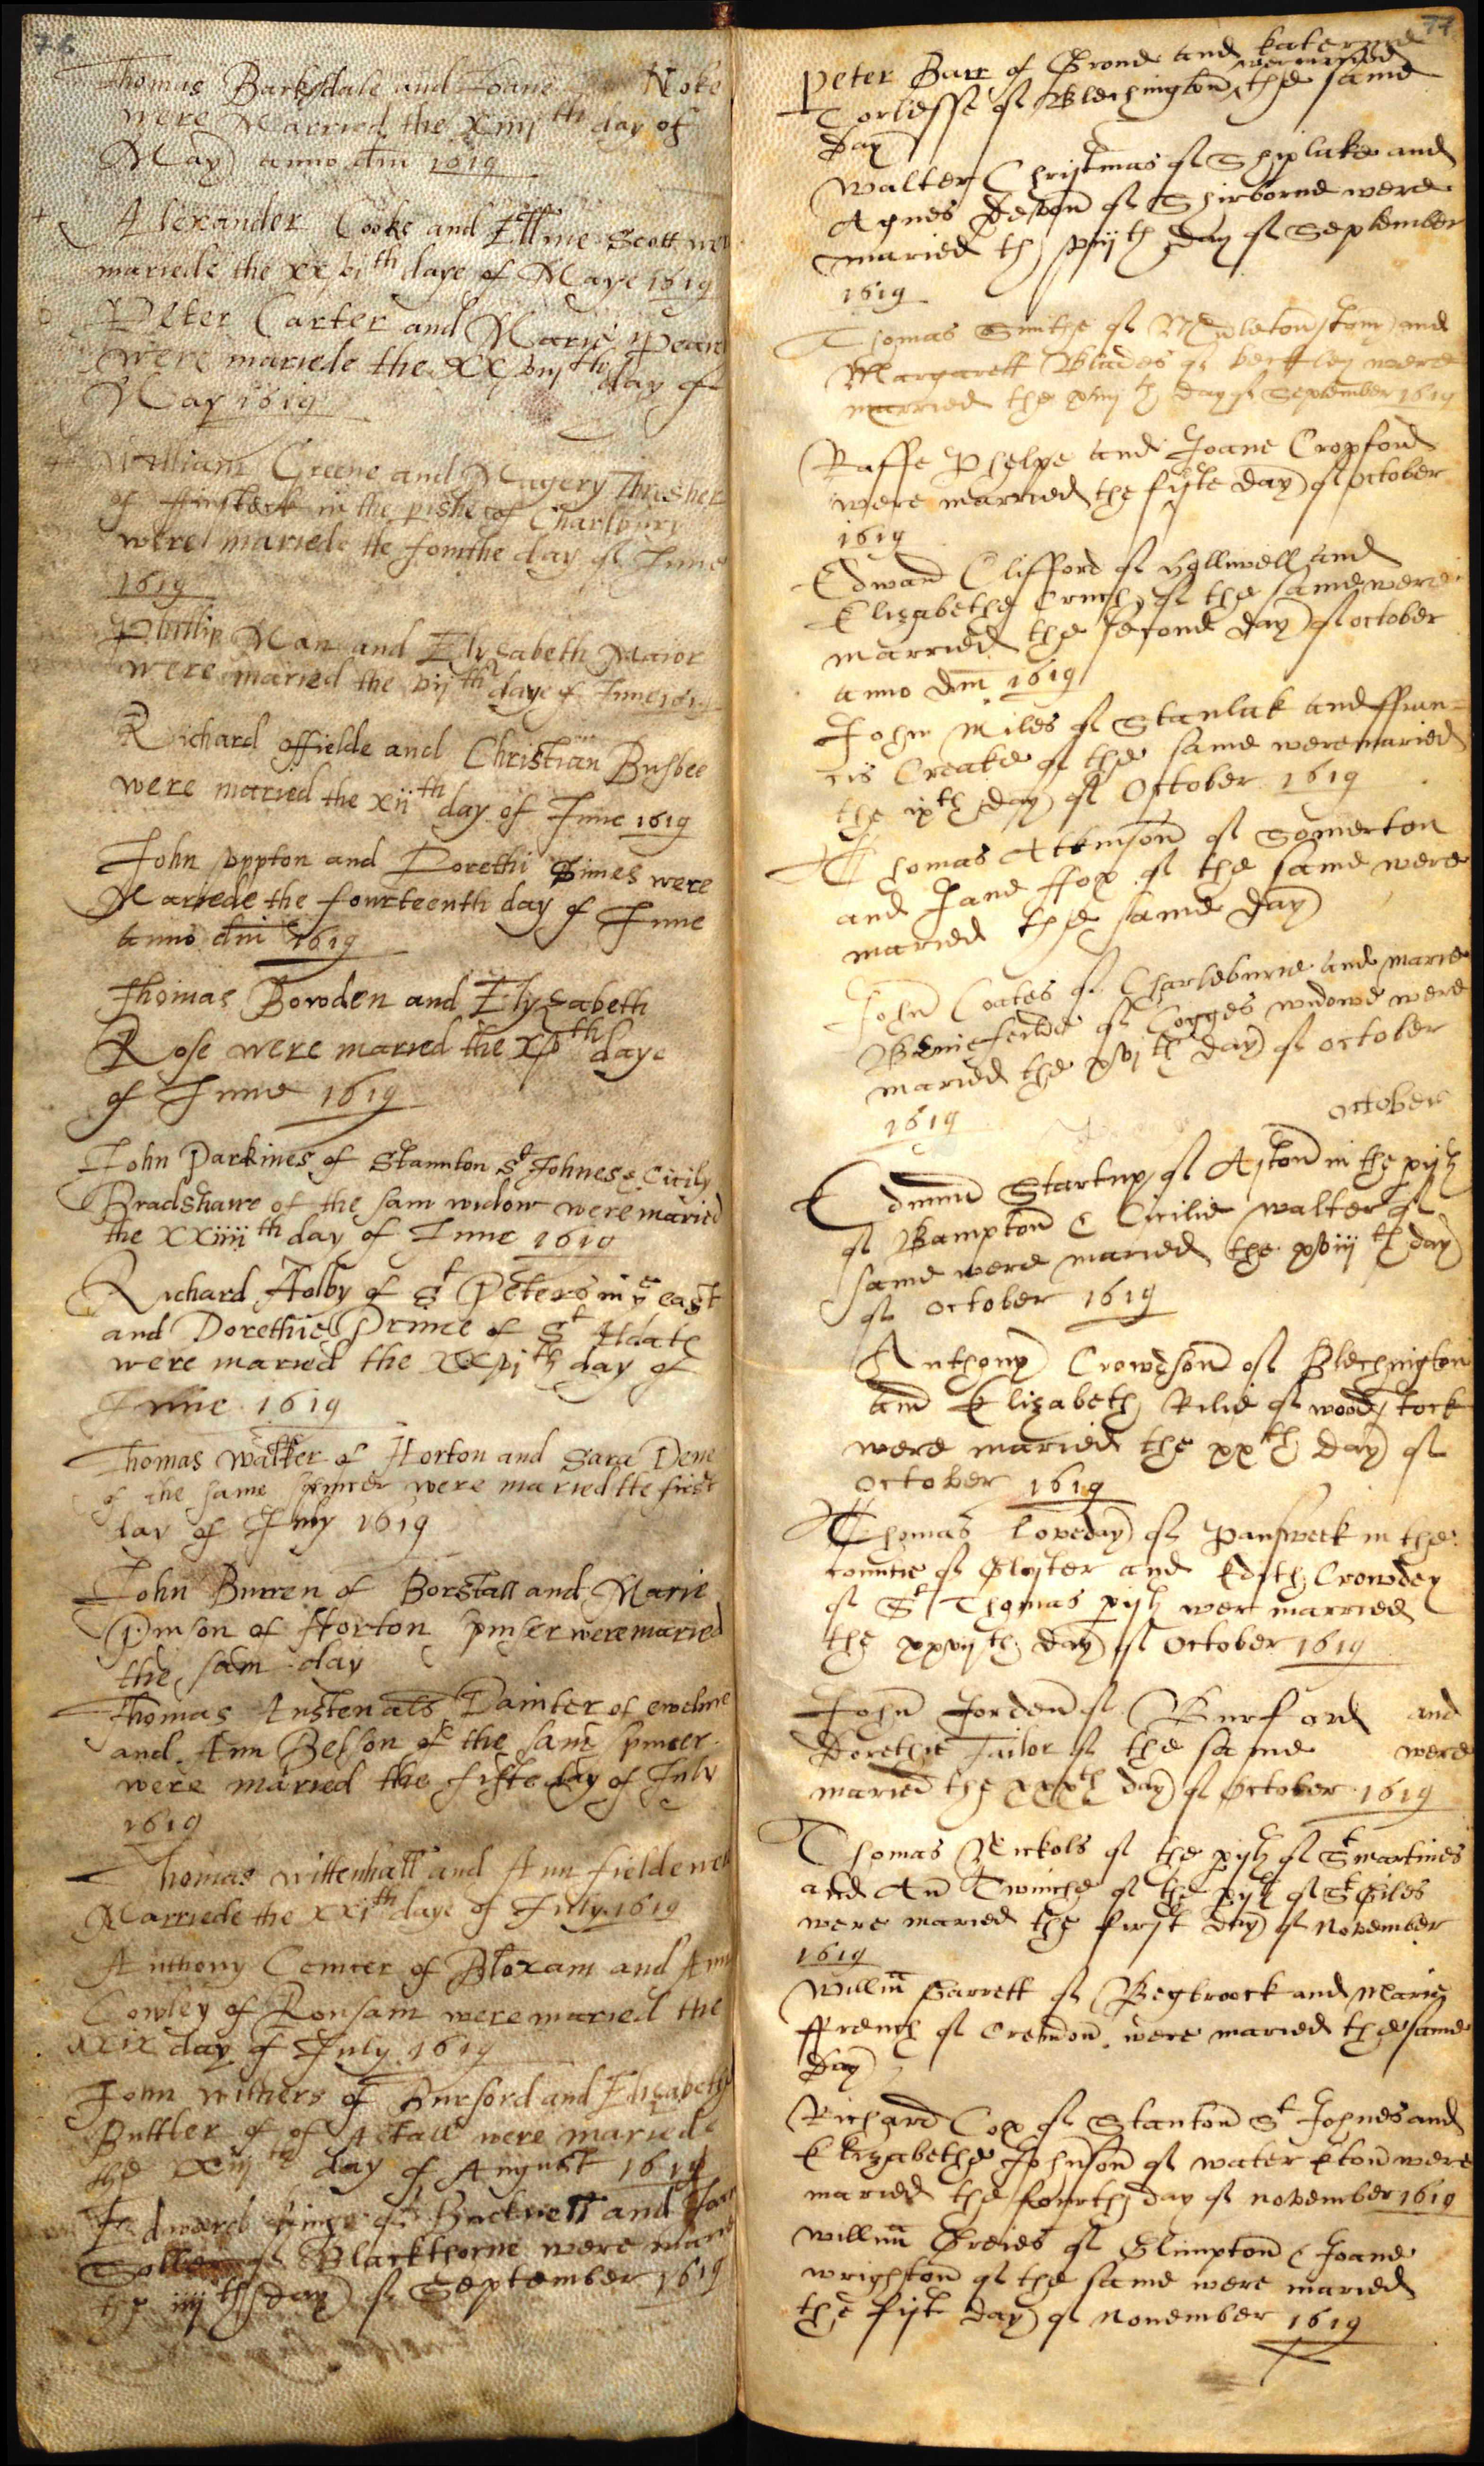 76
Thomas Barksdale and Joane Noke
were Married the xiiijth day of
May anno dm 1619
Alexander Cooke and Elline Scott wer
mariede the xxvith daye of Maye 1619
Peter Carter and Marie
were mariede the xxviijth day of
May 1619
William Greene and Magery Thresher
of ffinstock in the pishe of Charlbury
were mariede the fourthe day of June
1619
Phillip Man and Elyzabeth Maior
were maried the vijth daye of June 1619
Richard offielde and Christian Busbee
were maried the xiith day of June 1619
John vppton and Dorethi Simes were
Mariede the fourteenth day of June
anno dm 1619
Thomas Bowden and Elyzabeth
Rose were maried the xvth daye
of June 1619
John Parkines of Stannton St Johnes & Cicily
Bradshawe of the sam widow were maried
the xxiiiith day of June 1619
Richard Holby of St Peters in ye east
and Dorethie Prince of St Aldate
were maried the xxvith day of
June 1619
Thomas Walker of Horton and Sara Dene
of the same spincer were maried the first
day of July 1619
John Burren of Borstall and Marie
Pinson of Horton spinser were maried
the sam day
Thomas Austen als Dainter of ewelme
and Ann Belson of the same spincer
were maried the fifte day of July
1619
Thomas Wittenhall and Ann fielde wer
Marriede the xxith daye of July 1619
Anthony Comier of Bloxam and Ann
Cowley of Ronsam were maried the
xxix day of July 1619
John Withers of Burford and Elizabeth
Buttler of of Astall were mariede
the xxiijth day of August 1619
Edward of Bucknell and
of Blackthorne were
the iiijth day of September 1619
77
Peter Barr of Grone and katerine
Corlesse of Blechington were maried the same
day
Walter Christmas of Shiplake and
Agnes Deven of Shirborne were
maried the xvijth day of September
1619
Thomas Smithe of Midleton stony and
Margarett Blades of were
married the xviijth day of September 1619
Raffe Phelpe and Joane Cropford
were married the fiste day of October
1619
Edward Clifford of holliwell and
Elizabethe Cruch of the same were
married the second day of october
anno dm 1619
John Miles of Stanlak and ffran=
cis Creake of the same were maried
the ixth day of October 1619
Thomas Atkinson of Somerton
and Jane ffox of the same were
maried the same day
John Coates of Charleburie and marie
Beniefeilde of Cogges widowe were
maried the xvith day of october
1619
october
Edmund Startup of Aston in the pish
of Bampton & Cicilie walter of
same were maried the xviijth day
of october 1619
Anthony Crowson of Blechington
and Elizabeth Rilie of woodstock
were maried the xxth day of
October 1619
Thomas Loveday of Pansweek in the
countie of Gloster and Edith Crowdey
of St Thomas pish wer married
the xxvijth day of October 1619
John Jorden of Burford and
Dorethie Tailor of the same were
maried the xxxth day of October 1619
Thomas Nickols of the pish of St martines
and An Twinche of the pish of St Giles
were maried the first day of November
1619
Willim Garrett of Begbroock and Marie
ffrench of were maried the same
day
Richard Cox of Stanton St Johnes and
Elizabethe Johnson of water eton were
maried the fourth day of november 1619
willim Greies of Glimpton & Joane
wrighton of the same were maried
the fist day of november 1619